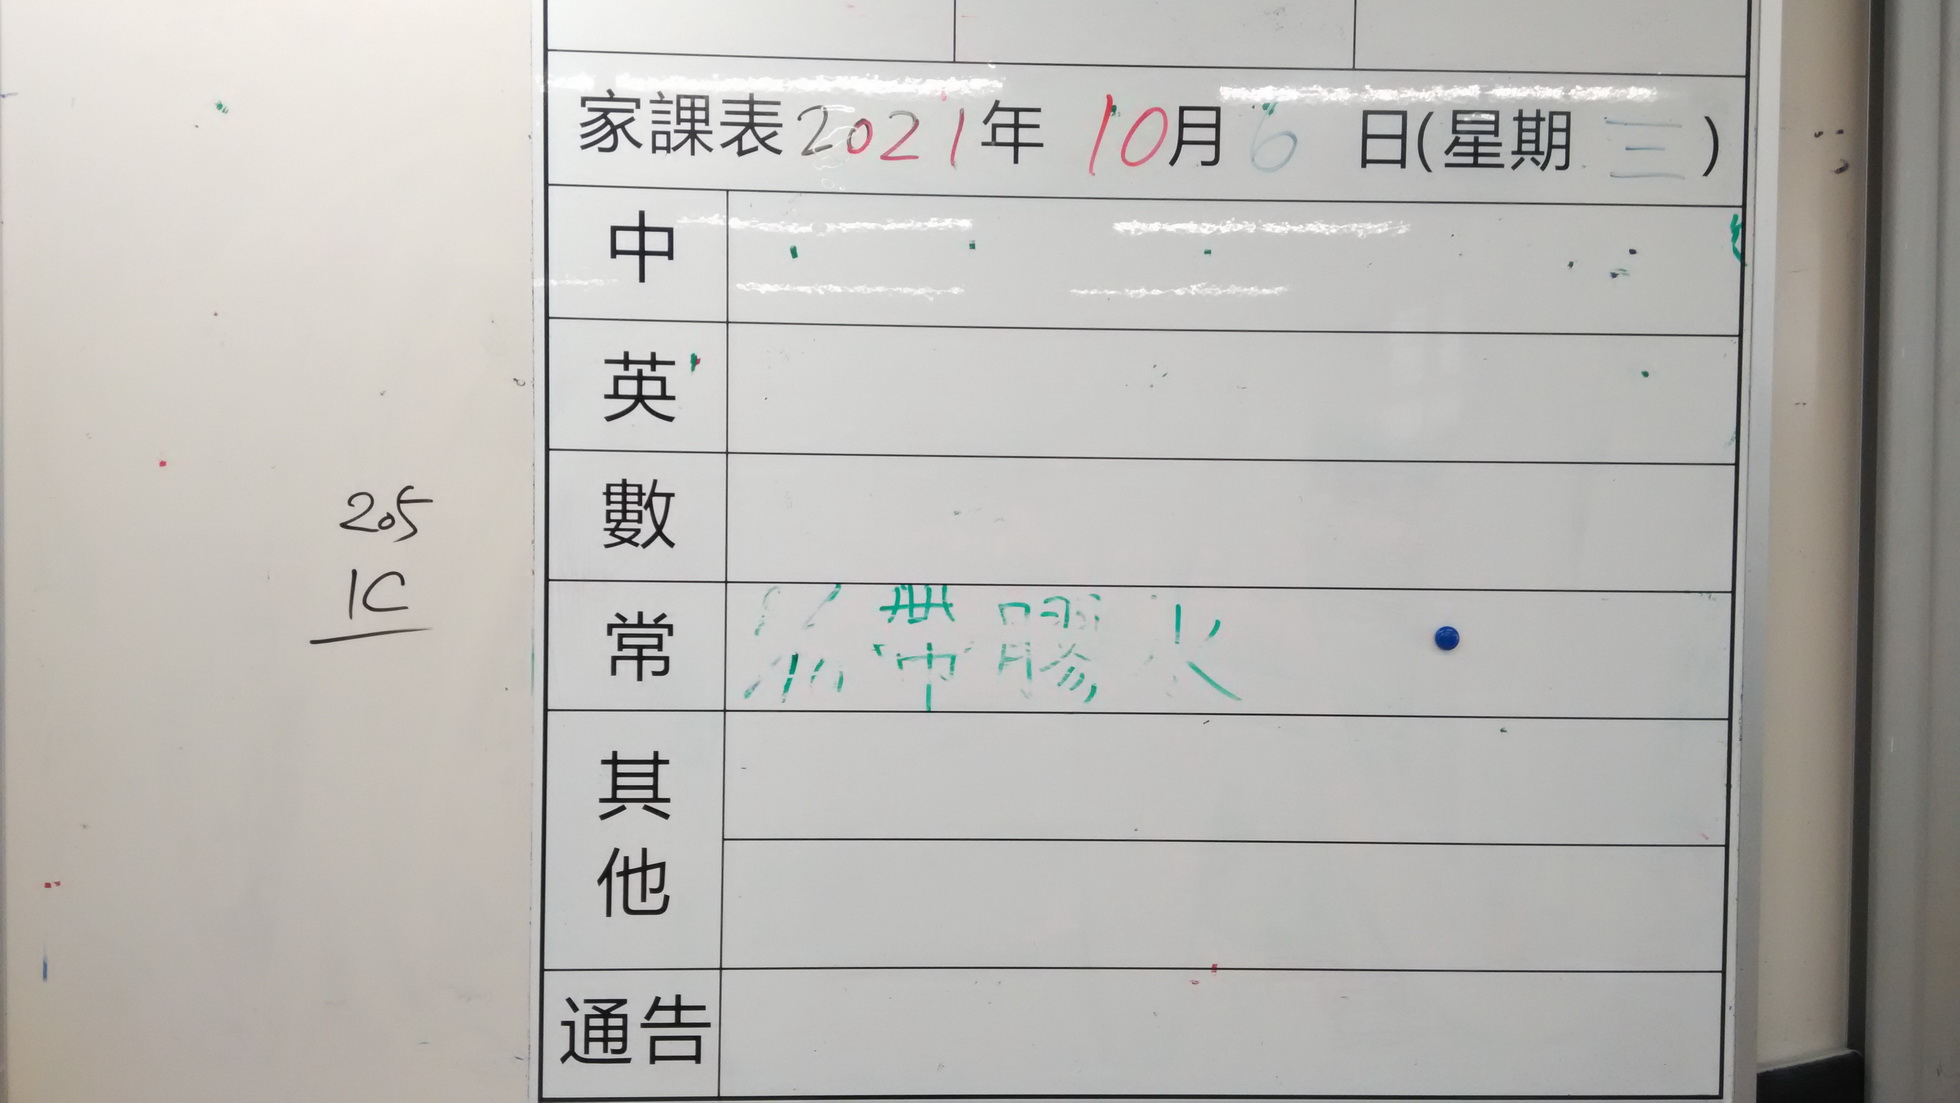 家課表2021年 10月6 日(星期 三 )
中
英
數
205
1C
常 帶膠水
其
他
通告